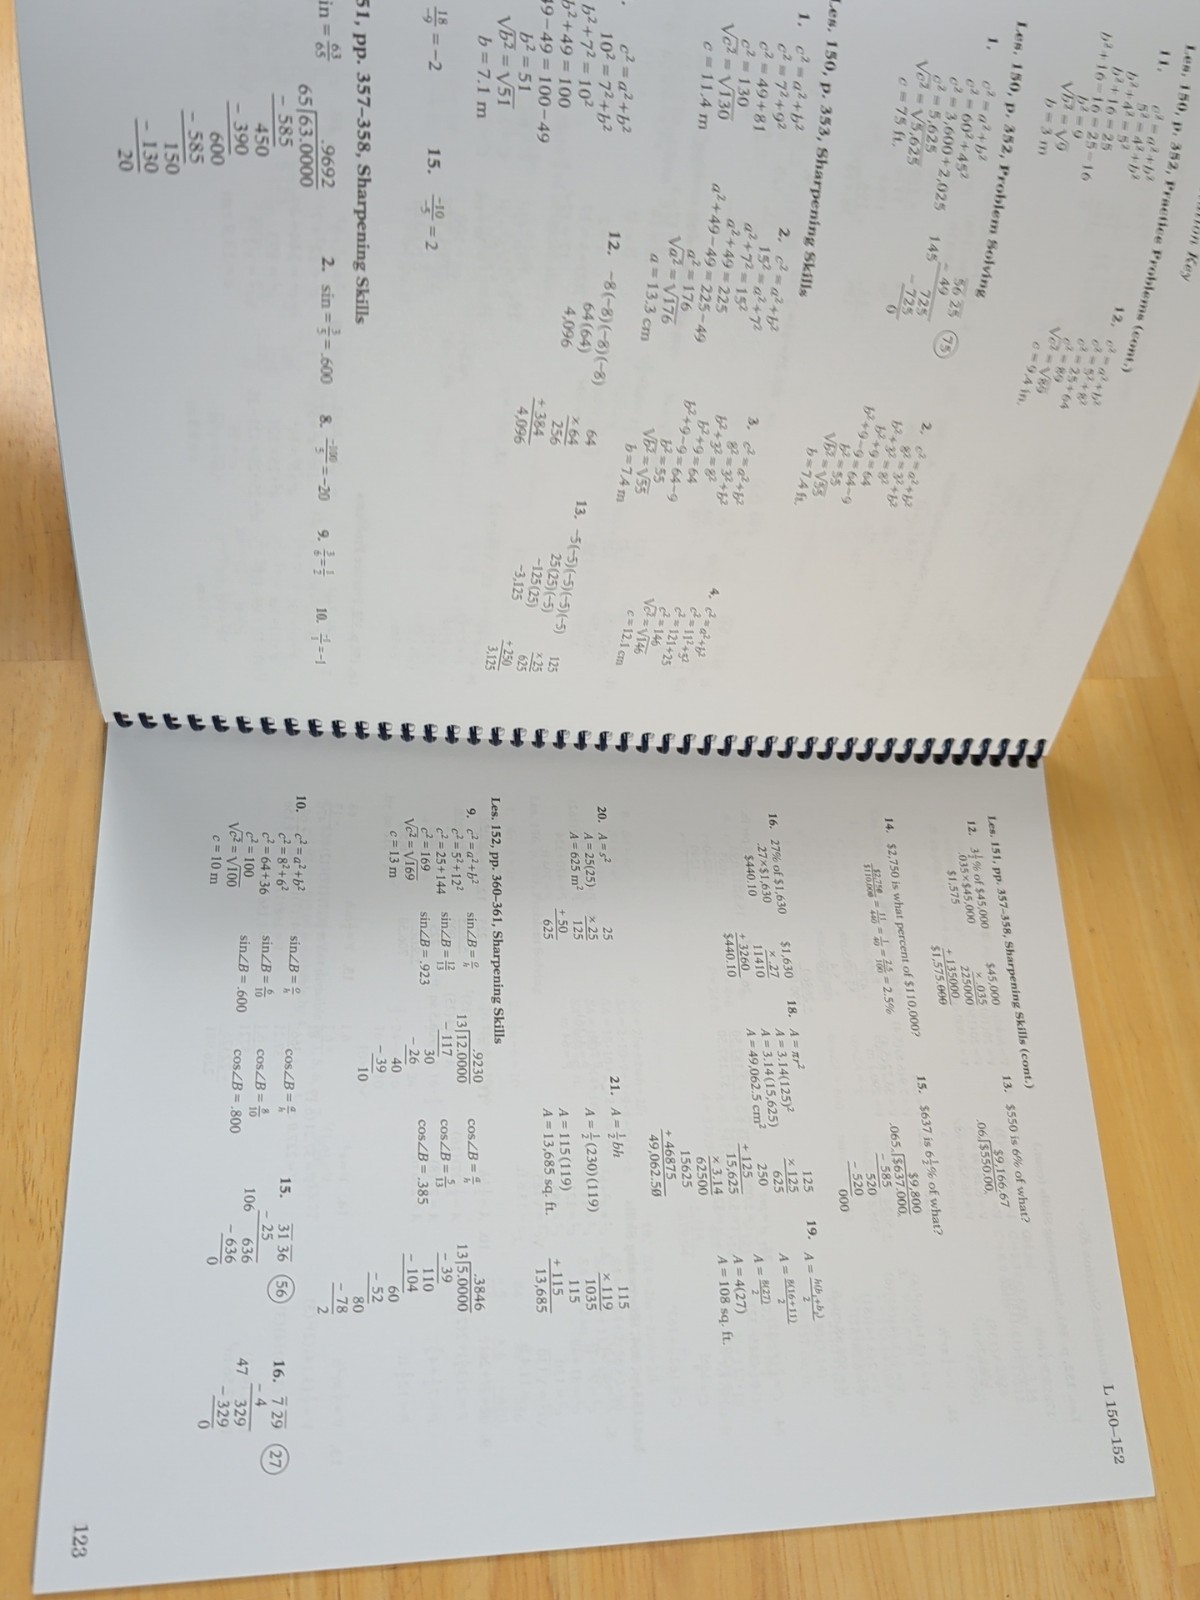 Les. 150, p. 352, Practice Problems (cont.)
11. c² = a² + b²
5² = 4² + b²
b² + 4² = 5²
b² + 16 = 25
b² + 16 − 16 = 25 − 16
b² = 9
√b² = √9
b = 3 m
12. c² = a² + b²
c² = 5² + 8²
c² = 25 + 64
c² = 89
√c² = √89
c = 9.4 in.
Les. 150, p. 352, Problem Solving
1. c² = a² + b²
c² = 60² + 45²
c² = 3,600 + 2,025
c² = 5,625
√c² = √5,625
c = 75 ft.
56 25 75
− 49
145 725
− 725
0
2. c² = a² + b²
8² = 3² + b²
b² + 3² = 8²
b² + 9 = 64
b² + 9 − 9 = 64 − 9
b² = 55
√b² = √55
b = 7.4 ft.
Les. 150, p. 353, Sharpening Skills
1. c² = a² + b²
c² = 7² + 9²
c² = 49 + 81
c² = 130
√c² = √130
c = 11.4 m
2. c² = a² + b²
15² = a² + 7²
a² + 7² = 15²
a² + 49 = 225
a² + 49 − 49 = 225 − 49
a² = 176
√a² = √176
a = 13.3 cm
3. c² = a² + b²
8² = 3² + b²
b² + 3² = 8²
b² + 9 = 64
b² + 9 − 9 = 64 − 9
b² = 55
√b² = √55
b = 7.4 m
4. c² = a² + b²
c² = 11² + 5²
c² = 121 + 25
c² = 146
√c² = √146
c = 12.1 cm
c² = a² + b²
10² = 7² + b²
b² + 7² = 10²
b² + 49 = 100
49 − 49 = 100 − 49
b² = 51
√b² = √51
b = 7.1 m
12. −8(−8)(−8)(−8)
64(64)
4,096
64
× 64
256
+ 384
4,096
13. −5(−5)(−5)(−5)(−5)
25(25)(−5)
−125(25)
−3,125
125
× 25
625
+ 250
3,125
18/−9 = −2
15. −10/−5 = 2
51, pp. 357–358, Sharpening Skills
in = 63/65
.9692
65)63.0000
− 585
450
− 390
600
− 585
150
− 130
20
2. sin = 3/5 = .600
8. −100/5 = −20
9. 3/6 = 1/2
10. = −1
L 150–152
Les. 151, pp. 357–358, Sharpening Skills (cont.)
12. 3½% of $45,000
.035 × $45,000
$1,575
$45,000
× .035
225000
+ 135000
$1,575.000
13. $550 is 6% of what?
$9,166.67
.06.)$550.00.
14. $2,750 is what percent of $110,000?
$2,750/$110,000 = 11/440 = 1/40 = 2.5/100 = 2.5%
15. $637 is 6½% of what?
$9,800
.065.)$637.000.
− 585
520
− 520
000
16. 27% of $1,630
.27 × $1,630
$440.10
$1,630
× .27
11410
+ 3260
$440.10
18. A = πr²
A = 3.14(125)²
A = 3.14(15,625)
A = 49,062.5 cm²
125
× 125
625
250
+ 125
15,625
× 3.14
62500
15625
+ 46875
49,062.50
19. A = h(b₁+b₂)/2
A = 8(16+11)/2
A = 8(27)/2
A = 4(27)
A = 108 sq. ft.
20. A = s²
A = 25(25)
A = 625 m²
25
× 25
125
+ 50
625
21. A = ½bh
A = ½(230)(119)
A = 115(119)
A = 13,685 sq. ft.
115
× 119
1035
115
+ 115
13,685
Les. 152, pp. 360–361, Sharpening Skills
9. c² = a² + b²
c² = 5² + 12²
c² = 25 + 144
c² = 169
√c² = √169
c = 13 m
sin∠B = o/h
sin∠B = 12/13
sin∠B = .923
.9230
13)12.0000
− 117
30
− 26
40
− 39
10
cos∠B = a/h
cos∠B = 5/13
cos∠B = .385
.3846
13)5.0000
− 39
110
− 104
60
− 52
80
− 78
2
10. c² = a² + b²
c² = 8² + 6²
c² = 64 + 36
c² = 100
√c² = √100
c = 10 m
sin∠B = o/h
sin∠B = 6/10
sin∠B = .600
cos∠B = a/h
cos∠B = 8/10
cos∠B = .800
15. 31 36 56
− 25
106 636
− 636
0
16. 7 29 27
− 4
47 329
− 329
0
123